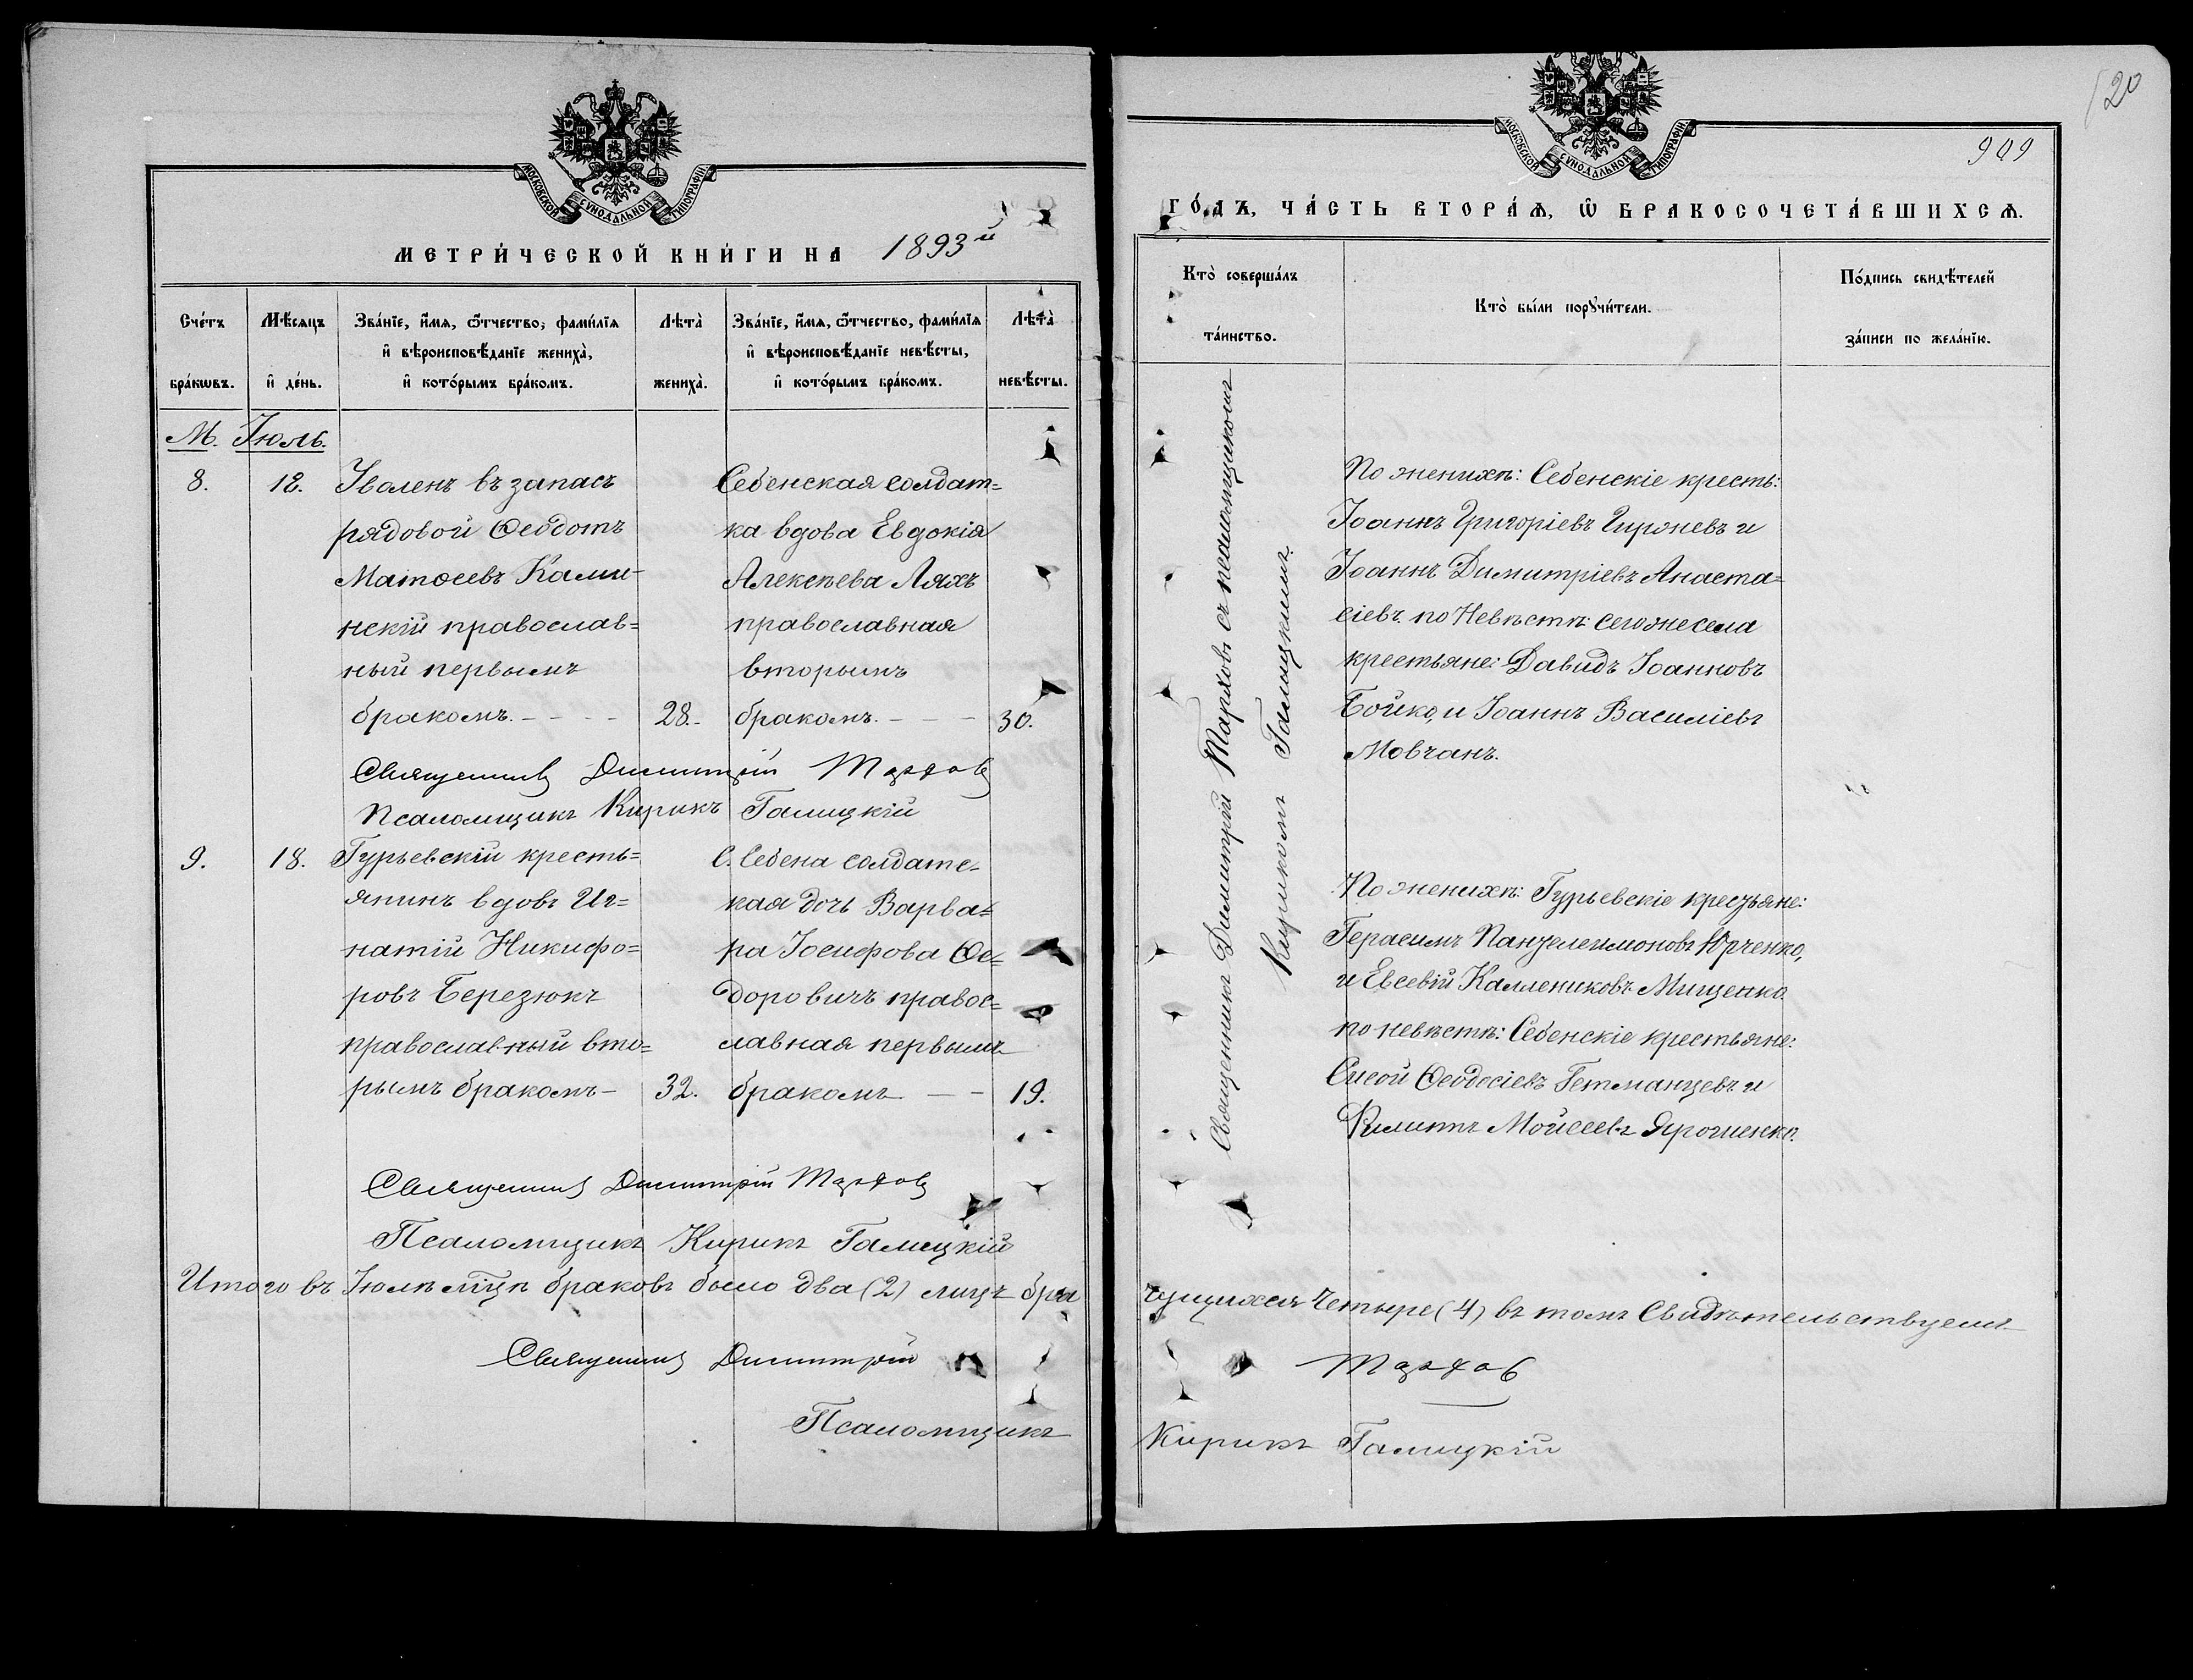 МОСКОВСКОЙ СУНОДАЛЬНОЙ ТИПОГРАФІИ
МЕТРИ́ЧЕСКОЙ КНИ́ГИ НА 1893й
Сче́тъ бра́кѡвъ.
Мѣ́сяцъ и҆ де́нь.
Зва́нїе, и҆́мѧ, ѻ҆́тчество, фами́лїѧ
и҆ вѣроисповѣ́данїе жениха̀,
и҆ кото́рымъ бра́комъ.
Лѣта̀ жениха̀.
Зва́нїе, и҆́мѧ, ѻ҆́тчество, фами́лїѧ
и҆ вѣроисповѣ́данїе невѣ́сты,
и҆ кото́рымъ бра́комъ.
Лѣта̀ невѣ́сты.
М. Іюль.
8.
18.
Уволенъ въ запасъ
рядовой Ѳеодотъ
Матѳеевъ Ками-
нскій православ=
ный первымъ
бракомъ.
28.
Себенская солдат=
ка вдова Евдокія
Алексѣева Ляхъ
православная
вторымъ
бракомъ.
30.
Священникъ Димитрій Тарховъ
Псаломщикъ Кирикъ Галицкій
9.
18.
Гурьевскій кресть=
янинъ вдовъ Иг=
натій Никифо=
ровъ Березюкъ
православный вто=
рымъ бракомъ
32.
С. Себена солдатс-
кая дочь Варва=
ра Іосифова Ѳе=
доровичъ правос=
лавная первымъ
бракомъ
19.
Священникъ Димитрій Тарховъ
Псаломщикъ Кирикъ Галицкій
Итого въ Іюлѣ мцѣ браковъ было два (2) лицъ бра
Священникъ Димитрій
Псаломщикъ
120
909
МОСКОВСКОЙ СУНОДАЛЬНОЙ ТИПОГРАФІИ
ГО́ДЪ, ЧА́СТЬ ВТОРА́Ѧ, Ѡ҆ БРАКОСОЧЕТА́ВШИХСѦ.
Кто̀ соверша́лъ
та́инство.
Кто̀ бы́ли порꙋчи́тели.
По́дпись свидѣ́телей
за́писи по жела́нїю.
Священникъ Димитрій Тарховъ съ псаломщикомъ
Кирикомъ Галицкимъ.
По женихѣ: Себенскіе кресть:
Іоаннъ Григоріевъ Гиржевъ и
Іоаннъ Димитріевъ Анаста=
сіевъ. по Невѣстѣ: сегоже села
крестьяне: Давидъ Іоанновъ
Бойко, и Іоаннъ Василіевъ
Мовчанъ.
По женихѣ: Гурьевскіе крестьяне:
Герасимъ Пантелеимоновъ Юрченко,
и Евсевій Каллениковъ Мищенко.
по невѣстѣ: Себенскіе крестьяне:
Сисой Ѳеодосіевъ Гетманцевъ и
Филиппъ Мойсеевъ Ярошенко.
чущихся четыре (4) въ томъ свидѣтельствуемъ
Тарховъ
Кирикъ Галицкій